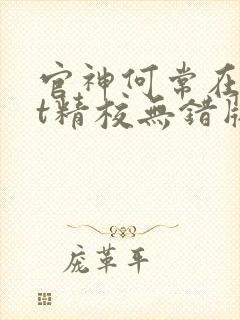 官神何常在
t精校無錯版
庞革平